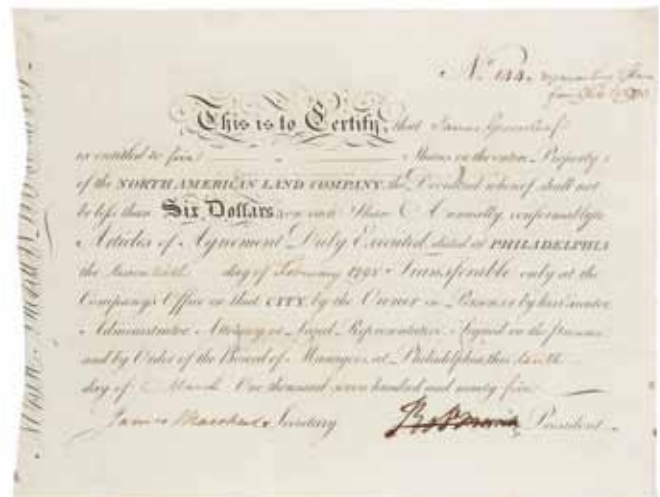 No. 144.
from Feb
This is to Certify, that James Greenleaf
is entitled to five Shares in the entire Property
of the NORTH AMERICAN LAND COMPANY, the Dividend whereof shall not
be less than Six Dollars on each Share Annually, conformably to
Articles of Agreement Duly Executed, dated at PHILADELPHIA
the day of February 1795 Transferable only at the
Company's Office in that CITY, by the Owner in Person, or by his Executor
Administrator Attorney or Legal Representative. Signed in the presence
and by Order of the Board of Managers, at Philadelphia, this tenth
day of March One thousand seven hundred and ninety five
James Marshall Secretary Robt Morris President